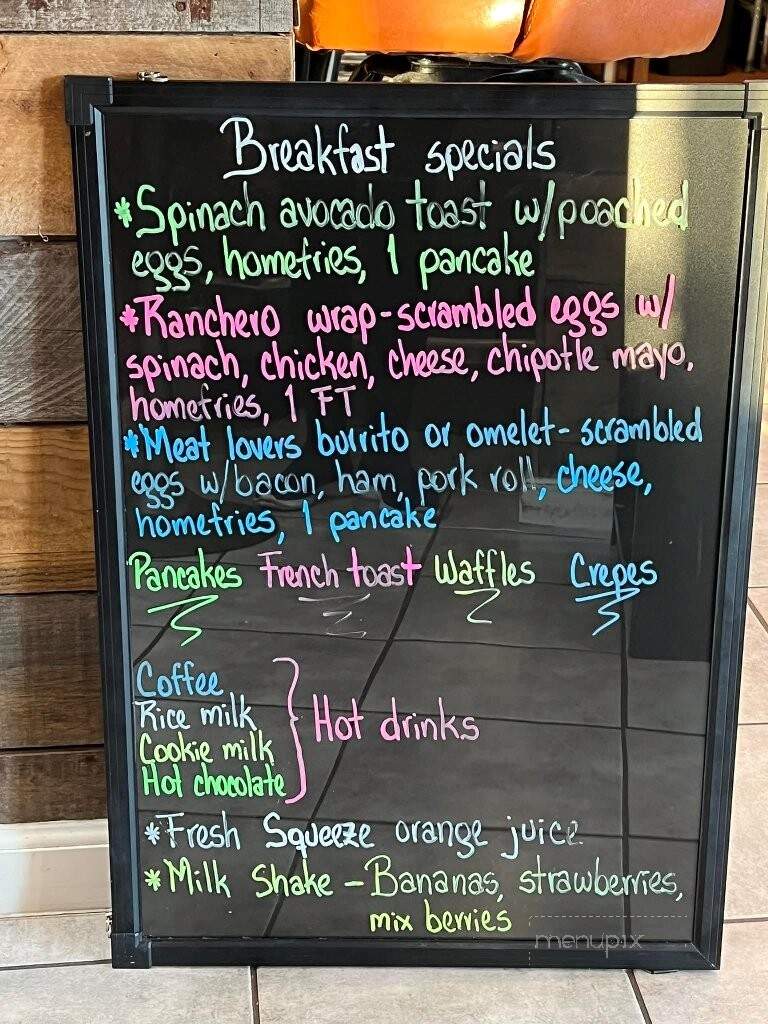 Breakfast specials
*Spinach avocado toast w/poached
eggs, homefries, 1 pancake
*Ranchero wrap-scrambled eggs w/
spinach, chicken, cheese, chipotle mayo,
homefries, 1 FT
*Meat lovers burrito or omelet- scrambled
eggs w/bacon, ham, pork roll, cheese,
homefries, 1 pancake
Pancakes French toast Waffles Crepes
Coffee
Rice milk
Cookie milk
Hot chocolate
Hot drinks
*Fresh Squeeze orange juice
*Milk Shake - Bananas, strawberries,
mix berries
menupix